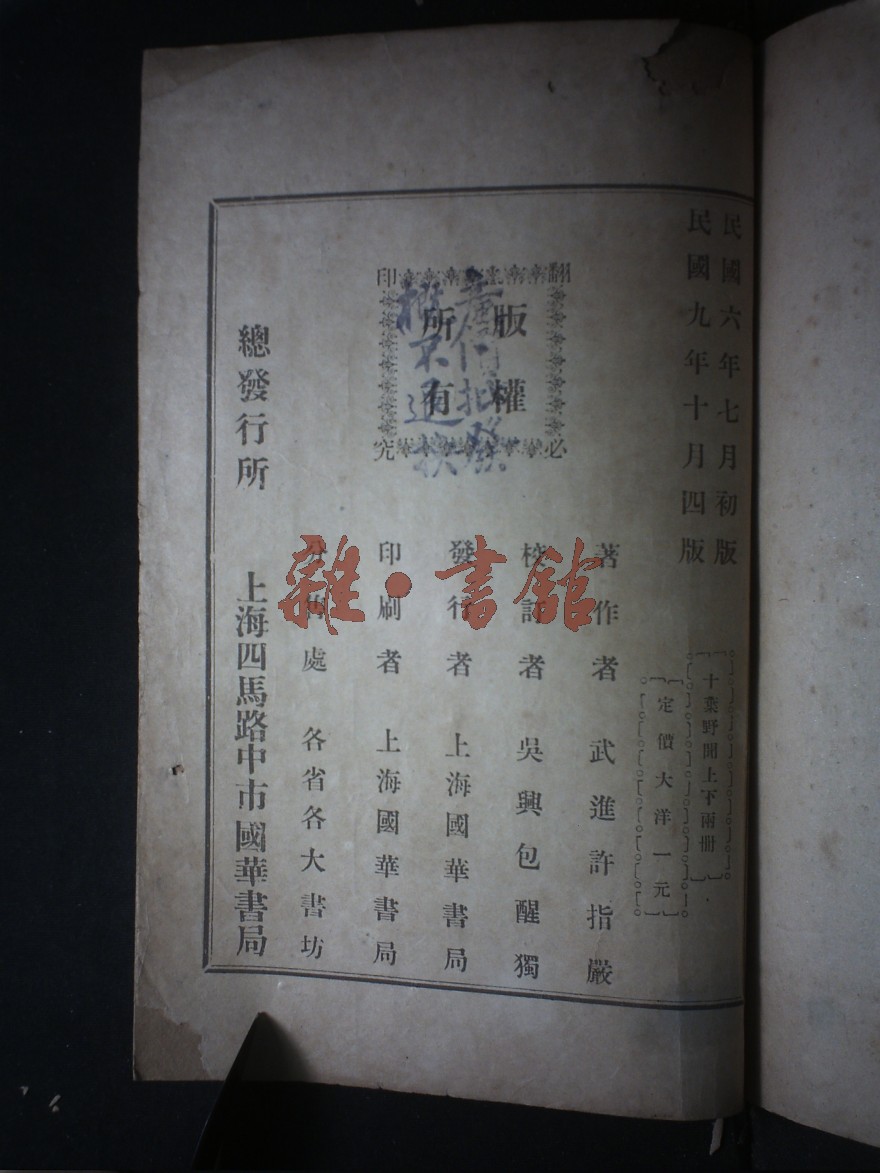 民國六年七月初版
民國九年十月四版
十葉野聞上下兩册
定價大洋一元
著作者 武進許指嚴
校訂者 吳興包醒獨
發行者 上海國華書局
印刷者 上海國華書局
分售處 各省各大書坊
翻印必究
版權
所有
總發行所 上海四馬路中市國華書局
雜·書館